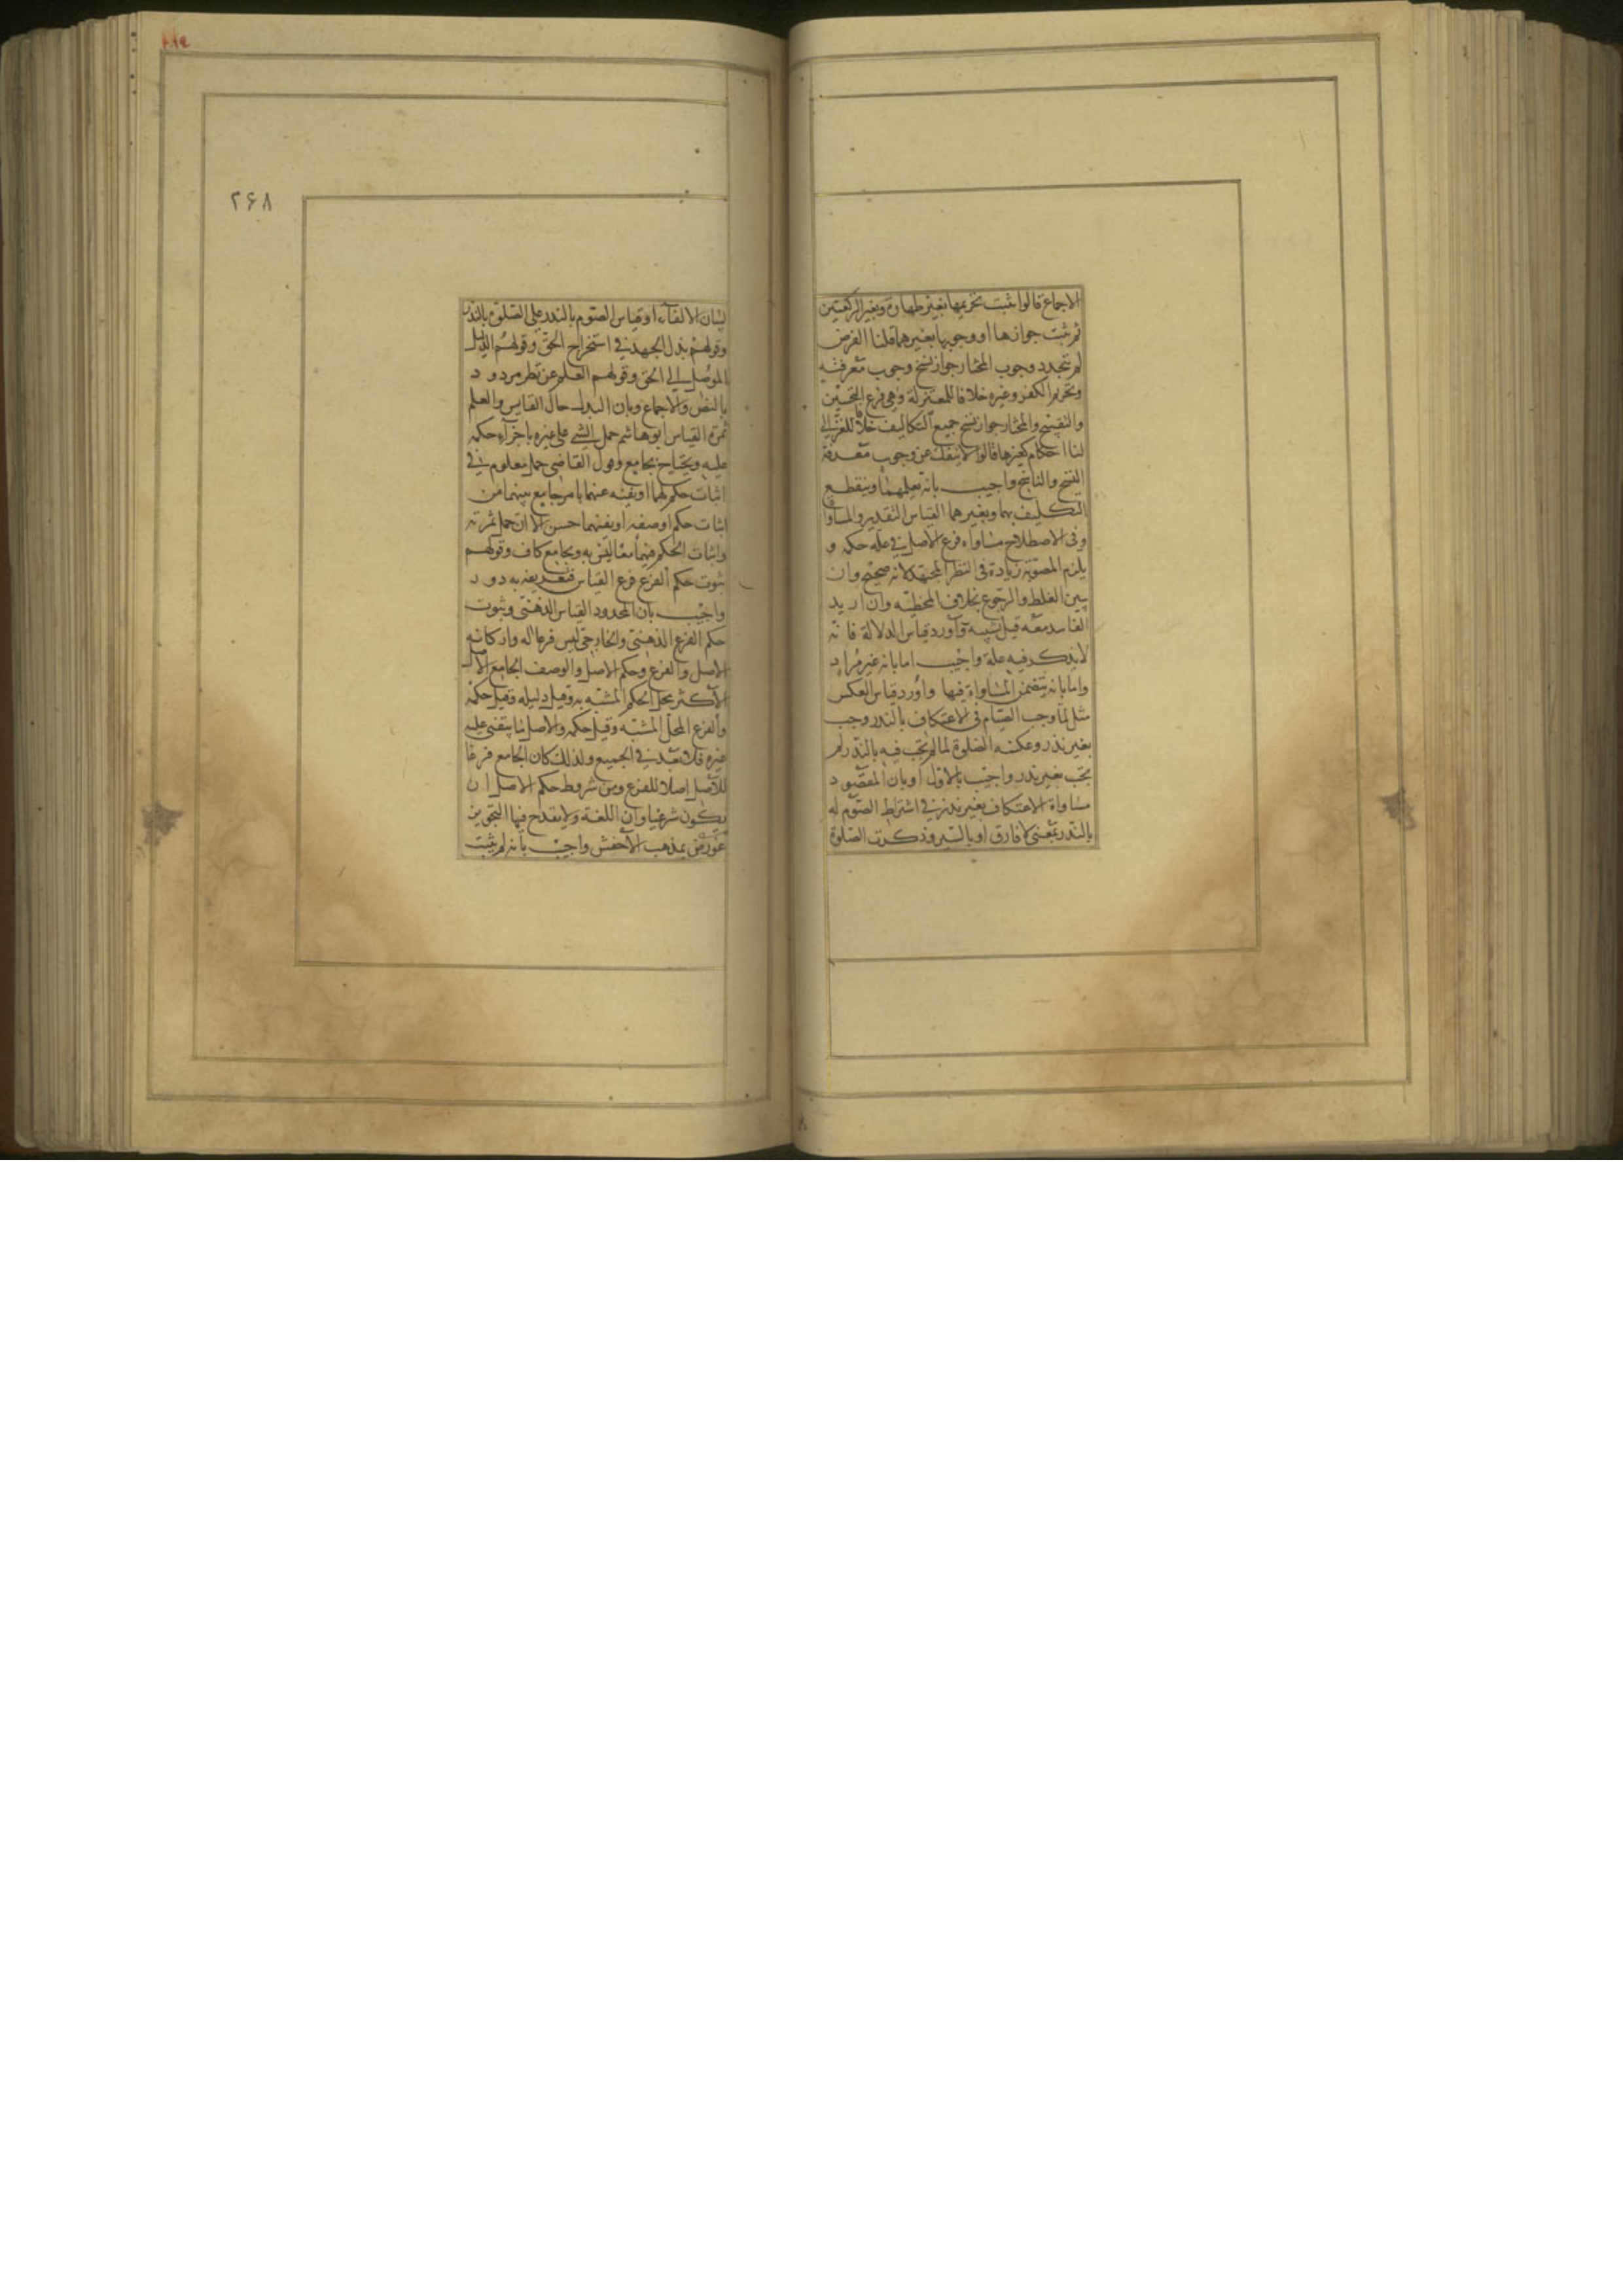 الاجماع قالوا ثبت تحريمها بغير طهارة وبغير الركعتين
ثم ثبت جوازها او وجوبها بغيرهما قلنا الفرض
لم يتجدد وجوب المختار جواز نسخ وجوب معرفته
وتحريم الكفر وغيره خلافا للمعتزلة وهي فرع التحسين
والتقبيح والمختار جواز نسخ جميع التكاليف خلافا للغزالي
لنا احكام كغيرها قالوا لا ينفك عن وجوب معرفة
النسخ والناسخ واجيب بانه يعلمهما وينقطع
التكليف بهما وبغيرهما القياس التقدير والمساواة
وفي الاصطلاح مساواة فرع الاصل في علة حكمه و
يلزم المصوبة زيادة في النظر المجتهد لانه صحيح وان
تبين الغلط والرجوع بخلاف المخطئة وان اريد
الفاسد معه قيل تشبيه واورد قياس الدلالة فانه
لا يذكر فيه علة واجيب اما بانه غير مراد
واما بانه يتضمن المساواة فيها واورد قياس العكس
مثل لما وجب الصيام في الاعتكاف بالنذر وجب
بغير نذر وعكسه الصلوة لما لم تجب فيه بالنذر لم
تجب بغير نذر واجيب بالاول او بان المقصود
مساواة الاعتكاف بغير نذر في اشتراط الصوم له
بالنذر بمعنى لا فارق او بالسبر وذكرت الصلوة
۲۶۸
لبيان الالغاء او قياس الصوم بالنذر على الصلوة بالنذر
وقولهم بذل الجهد في استخراج الحق وقولهم الدليل
الموصل الى الحق وقولهم العلم عن نظر مردود
بالنص والاجماع وبان البذل حال القايس والعلم
ثمرة القياس ابو هاشم حمل الشيء على غيره باجزاء حكمه
عليه ويحتاج بجامع وقول القاضي حمل معلوم في
اثبات حكم لهما او نفيه عنهما بامر جامع بينهما من
اثبات حكم او صفة او نفيهما حسن الا ان حمل ثمرته
واثبات الحكم فيهما معا ليس به وبجامع كاف وقولهم
ثبوت حكم الفرع فرع القياس فتعريفه به دور
واجيب بان المحدود القياس الذهني وثبوت
حكم الفرع الذهني والخارجي ليس فرعا له واركانه
الاصل والفرع وحكم الاصل والوصف الجامع الاصل
الاكثر محل الحكم المشبه به وقيل دليله وقيل حكمه
والفرع المحل المشبه وقيل حكمه والاصل ما يبتنى عليه
غيره فلا بعد في الجميع ولذلك كان الجامع فرعا
للاصل اصلا للفرع ومن شروط حكم الاصل ان
يكون شرعيا وان اللغة ولا يقدح فيها التجويز
عورض بمذهب الاخفش واجيب بانه لم يثبت